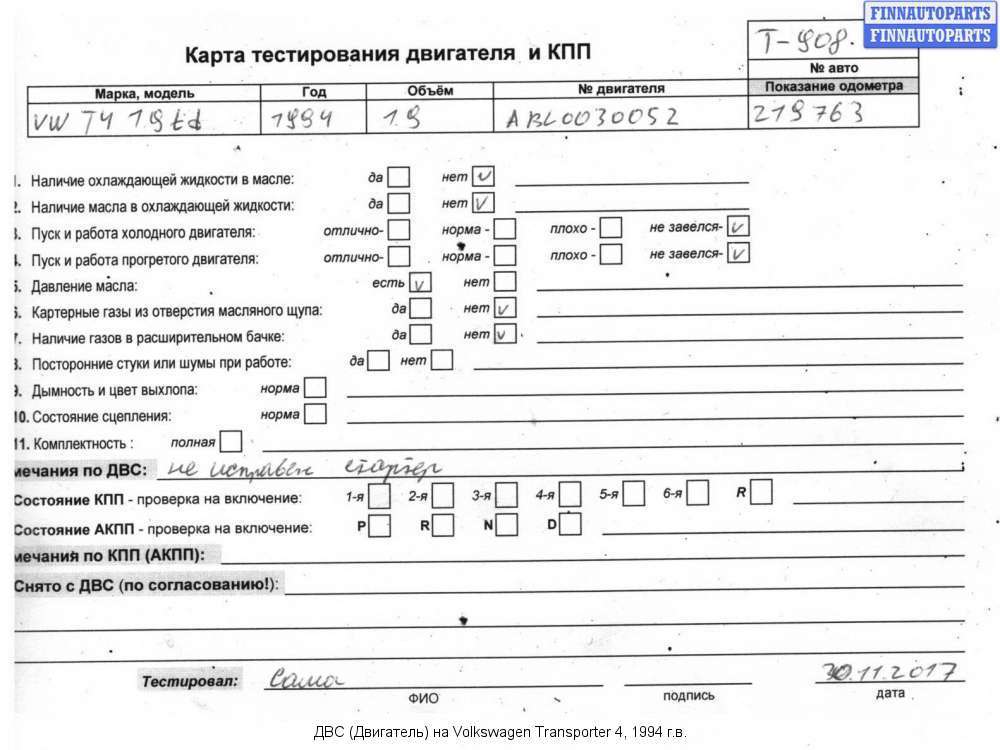 FINNAUTOPARTS
FINNAUTOPARTS
Карта тестирования двигателя и КПП
T-908.
№ авто
Марка, модель Год Объём № двигателя Показание одометра
VW T4 1.9td 1994 1.9 ABL0030052 219763
1. Наличие охлаждающей жидкости в масле: да нет ✓
2. Наличие масла в охлаждающей жидкости: да нет ✓
3. Пуск и работа холодного двигателя: отлично- норма - плохо - не завелся- ✓
4. Пуск и работа прогретого двигателя: отлично- норма - плохо - не завелся- ✓
5. Давление масла: есть ✓ нет
6. Картерные газы из отверстия масляного щупа: да нет ✓
7. Наличие газов в расширительном бачке: да нет ✓
8. Посторонние стуки или шумы при работе: да нет
9. Дымность и цвет выхлопа: норма
10. Состояние сцепления: норма
11. Комплектность : полная
мечания по ДВС: не исправен стартер
Состояние КПП - проверка на включение: 1-я 2-я 3-я 4-я 5-я 6-я R
Состояние АКПП - проверка на включение: P R N D
мечания по КПП (АКПП):
Снято с ДВС (по согласованию!):
Тестировал: Саша 30.11.2017
ФИО подпись дата
ДВС (Двигатель) на Volkswagen Transporter 4, 1994 г.в.